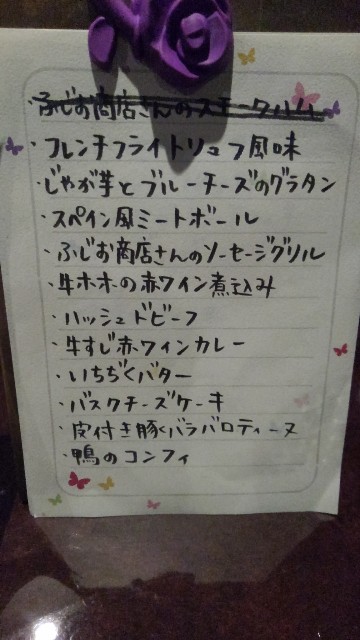 ・ふじお商店さんのスモークハム
・フレンチフライトリュフ風味
・じゃが芋とブルーチーズのグラタン
・スペイン風ミートボール
・ふじお商店さんのソーセージグリル
・牛ホホの赤ワイン煮込み
・ハッシュドビーフ
・牛すじ赤ワインカレー
・いちぢくバター
・バスクチーズケーキ
・皮付き豚バラバロティーヌ
・鴨のコンフィ